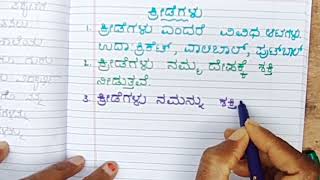 ಕ್ರೀಡೆಗಳು
1. ಕ್ರೀಡೆಗಳು ಎಂದರೆ ವಿವಿಧ ಆಟಗಳು.
ಉದಾ:ಕ್ರಿಕೆಟ್, ವಾಲಿಬಾಲ್, ಫುಟ್‌ಬಾಲ್
2. ಕ್ರೀಡೆಗಳು ನಮ್ಮ ದೇಹಕ್ಕೆ ಶಕ್ತಿ
ನೀಡುತ್ತವೆ.
3. ಕ್ರೀಡೆಗಳು ನಮನ್ನು ಶಕ್ತಿ